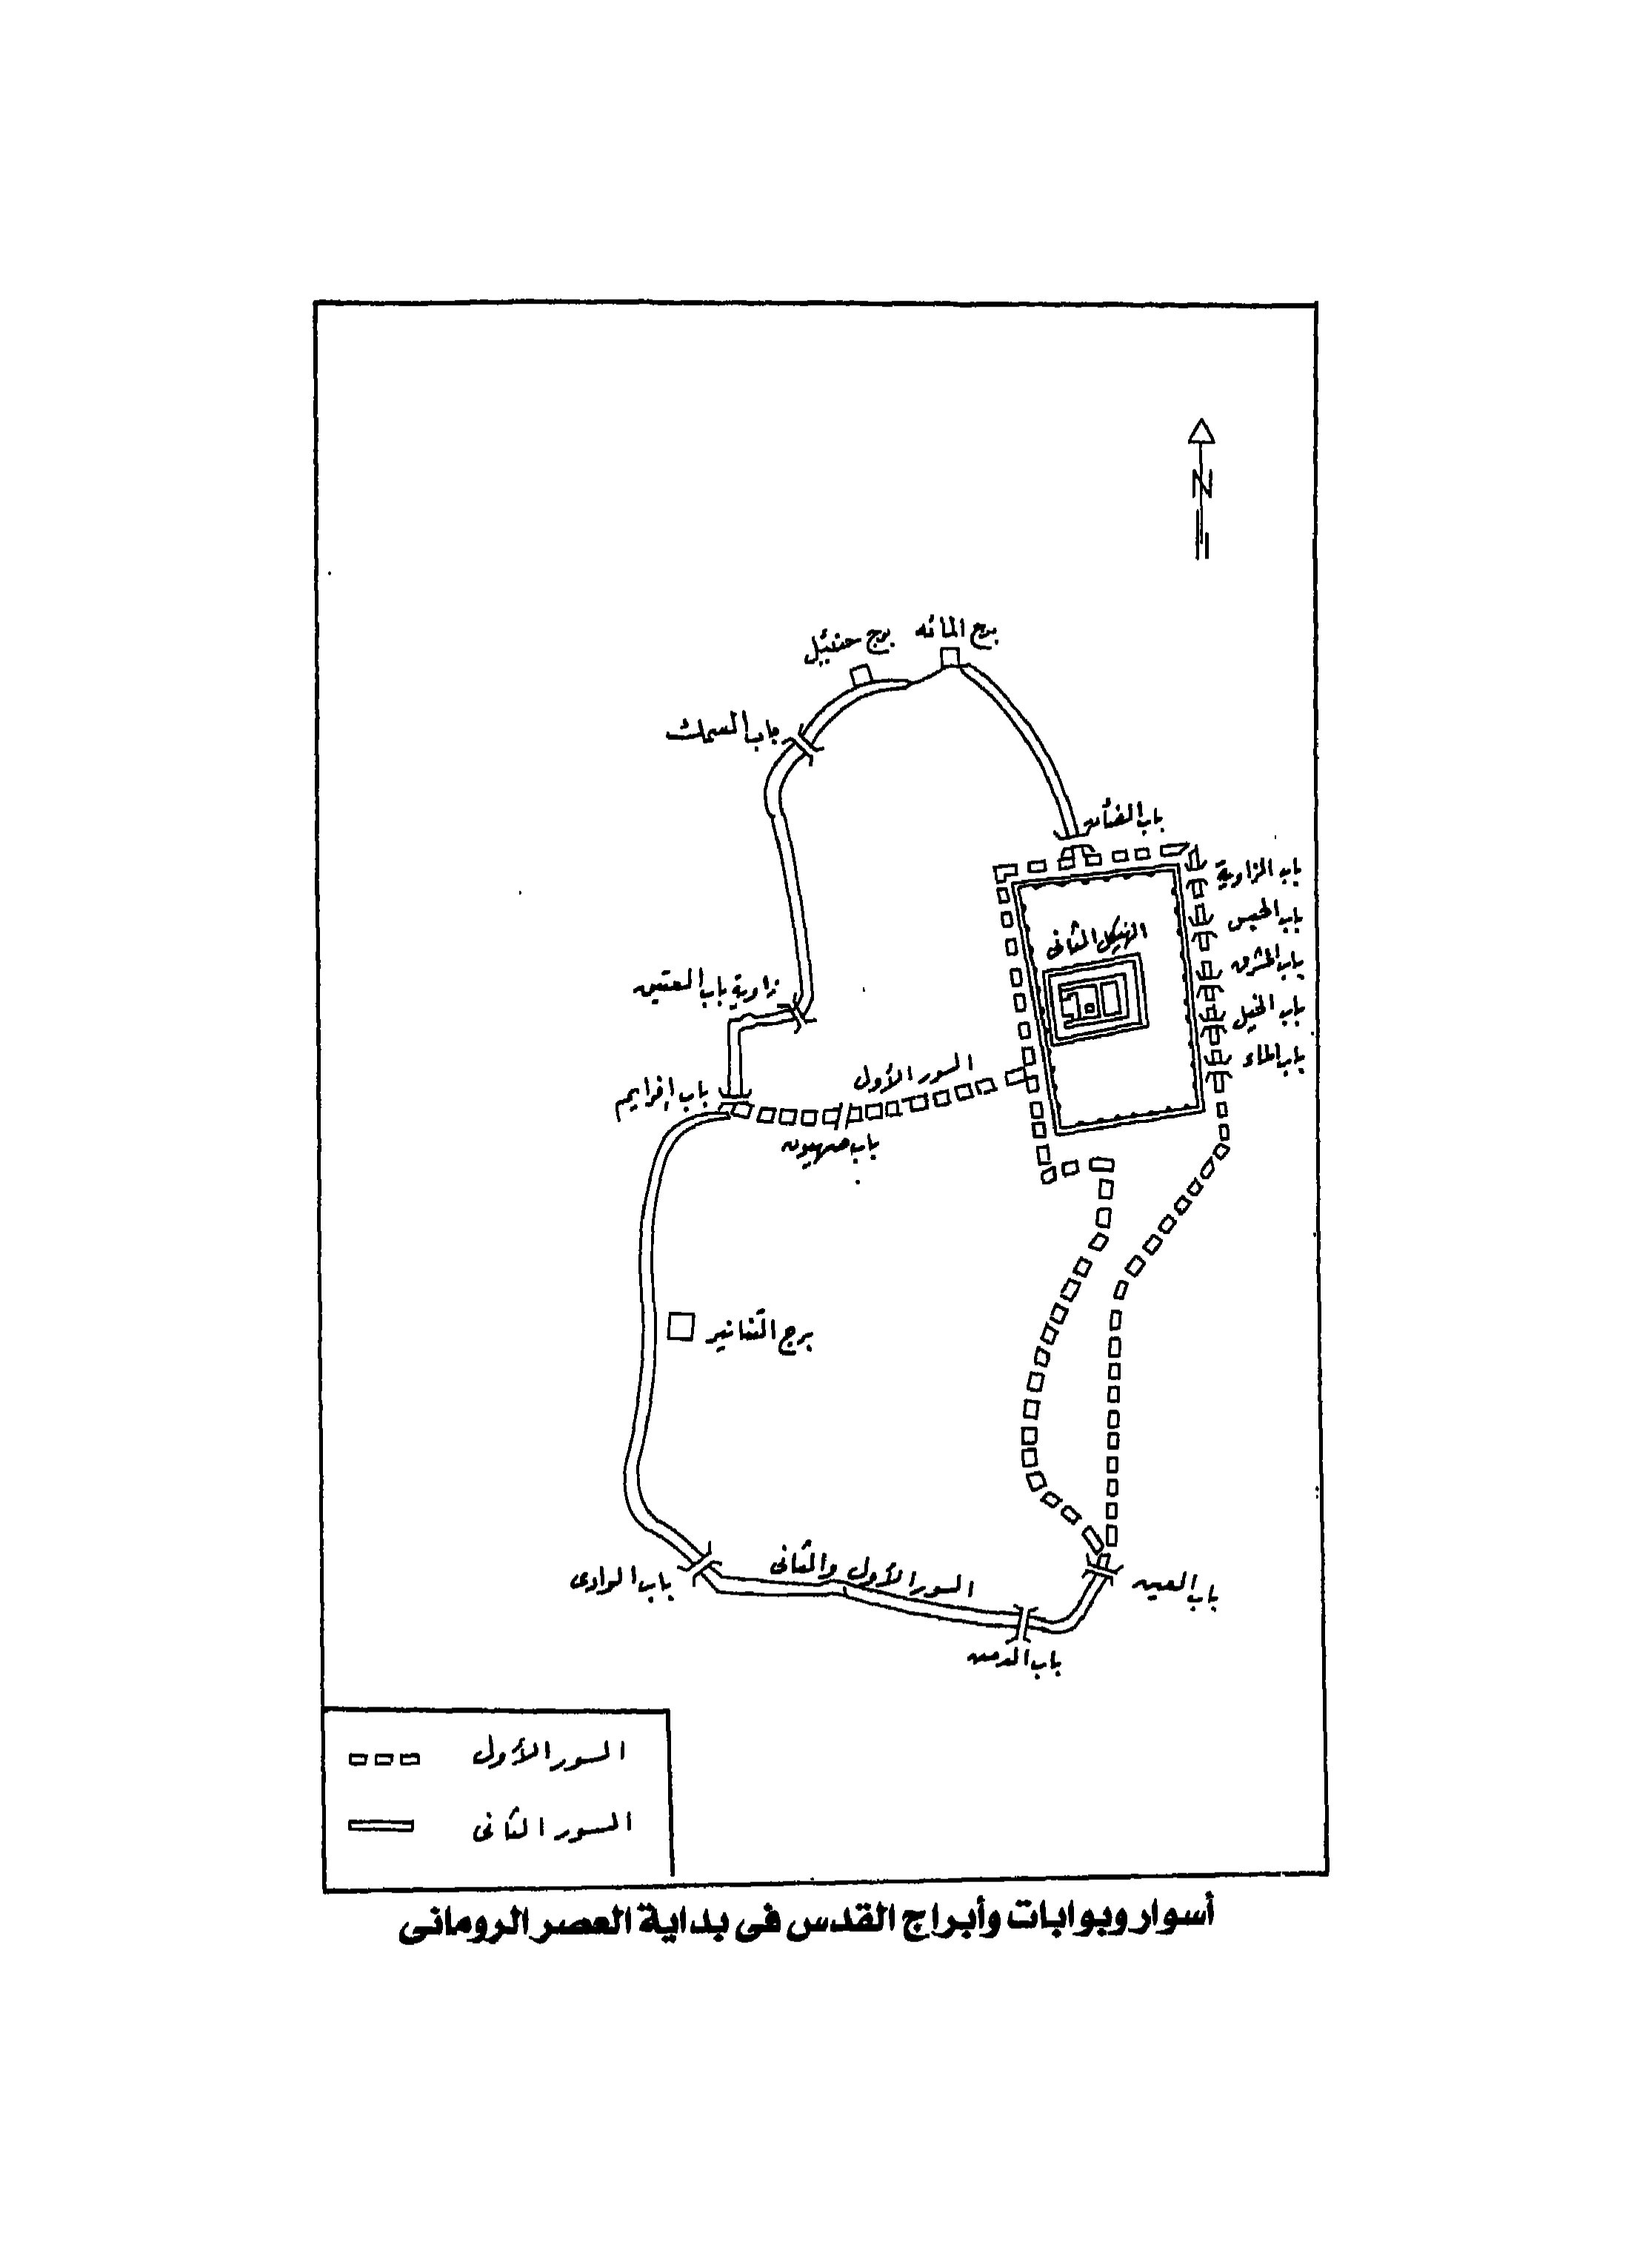 N
برج المائه
برج حننئيل
باب السمك
باب الضأن
باب الزاوية
باب الحبس
باب الشرق
باب الخيل
باب الماء
الهيكل الثانى
زاوية باب العتيق
السور الأول
باب إفرايم
باب صهيون
برج التنانير
السور الأول والثانى
باب الوادى
باب العين
باب الدمن
السور الأول
السور الثانى
أسوار وبوابات وأبراج القدس فى بداية العصر الرومانى